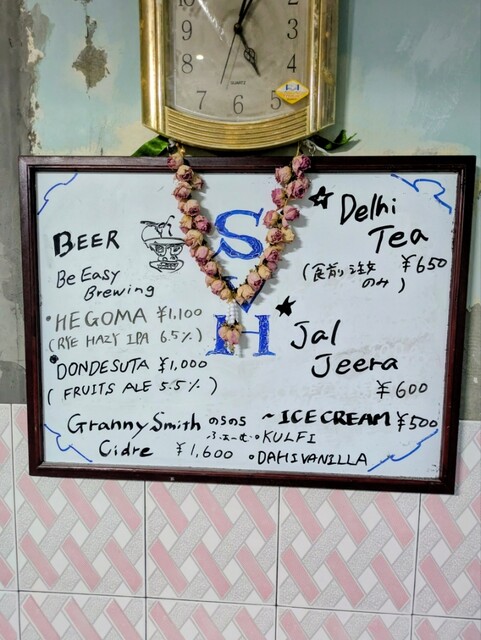 10
2
9
3
8
4
7
6
5
QUARTZ
S
H
BEER
Be Easy
Brewing
・HEGOMA ¥1,100
(RYE HAZY IPA 6.5%)
・DONDESUTA ¥1,000
(FRUITS ALE 5.5%)
Granny Smith のらのら
ふぁーむ
Cidre ¥1,600
★ Delhi
Tea
¥650
(食前注文
のみ)
★ Jal
Jeera
¥600
~ICE CREAM ¥500
・KULFI
・DAHI VANILLA